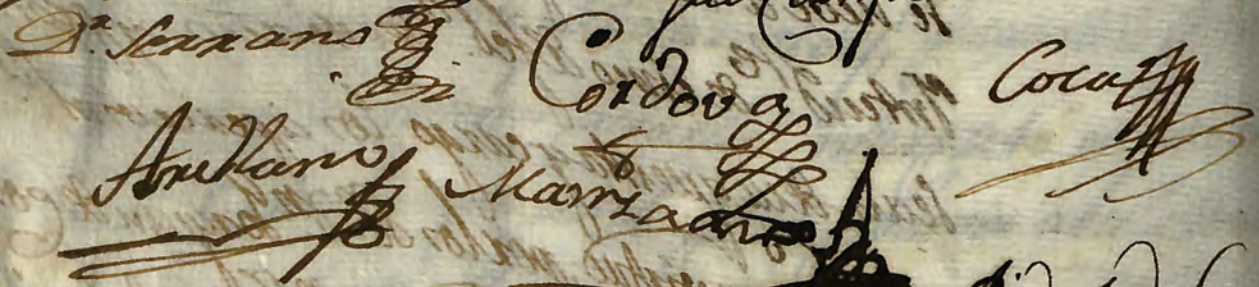 Dr. Serrano
Cordova
Coca
Arellano
Manzano